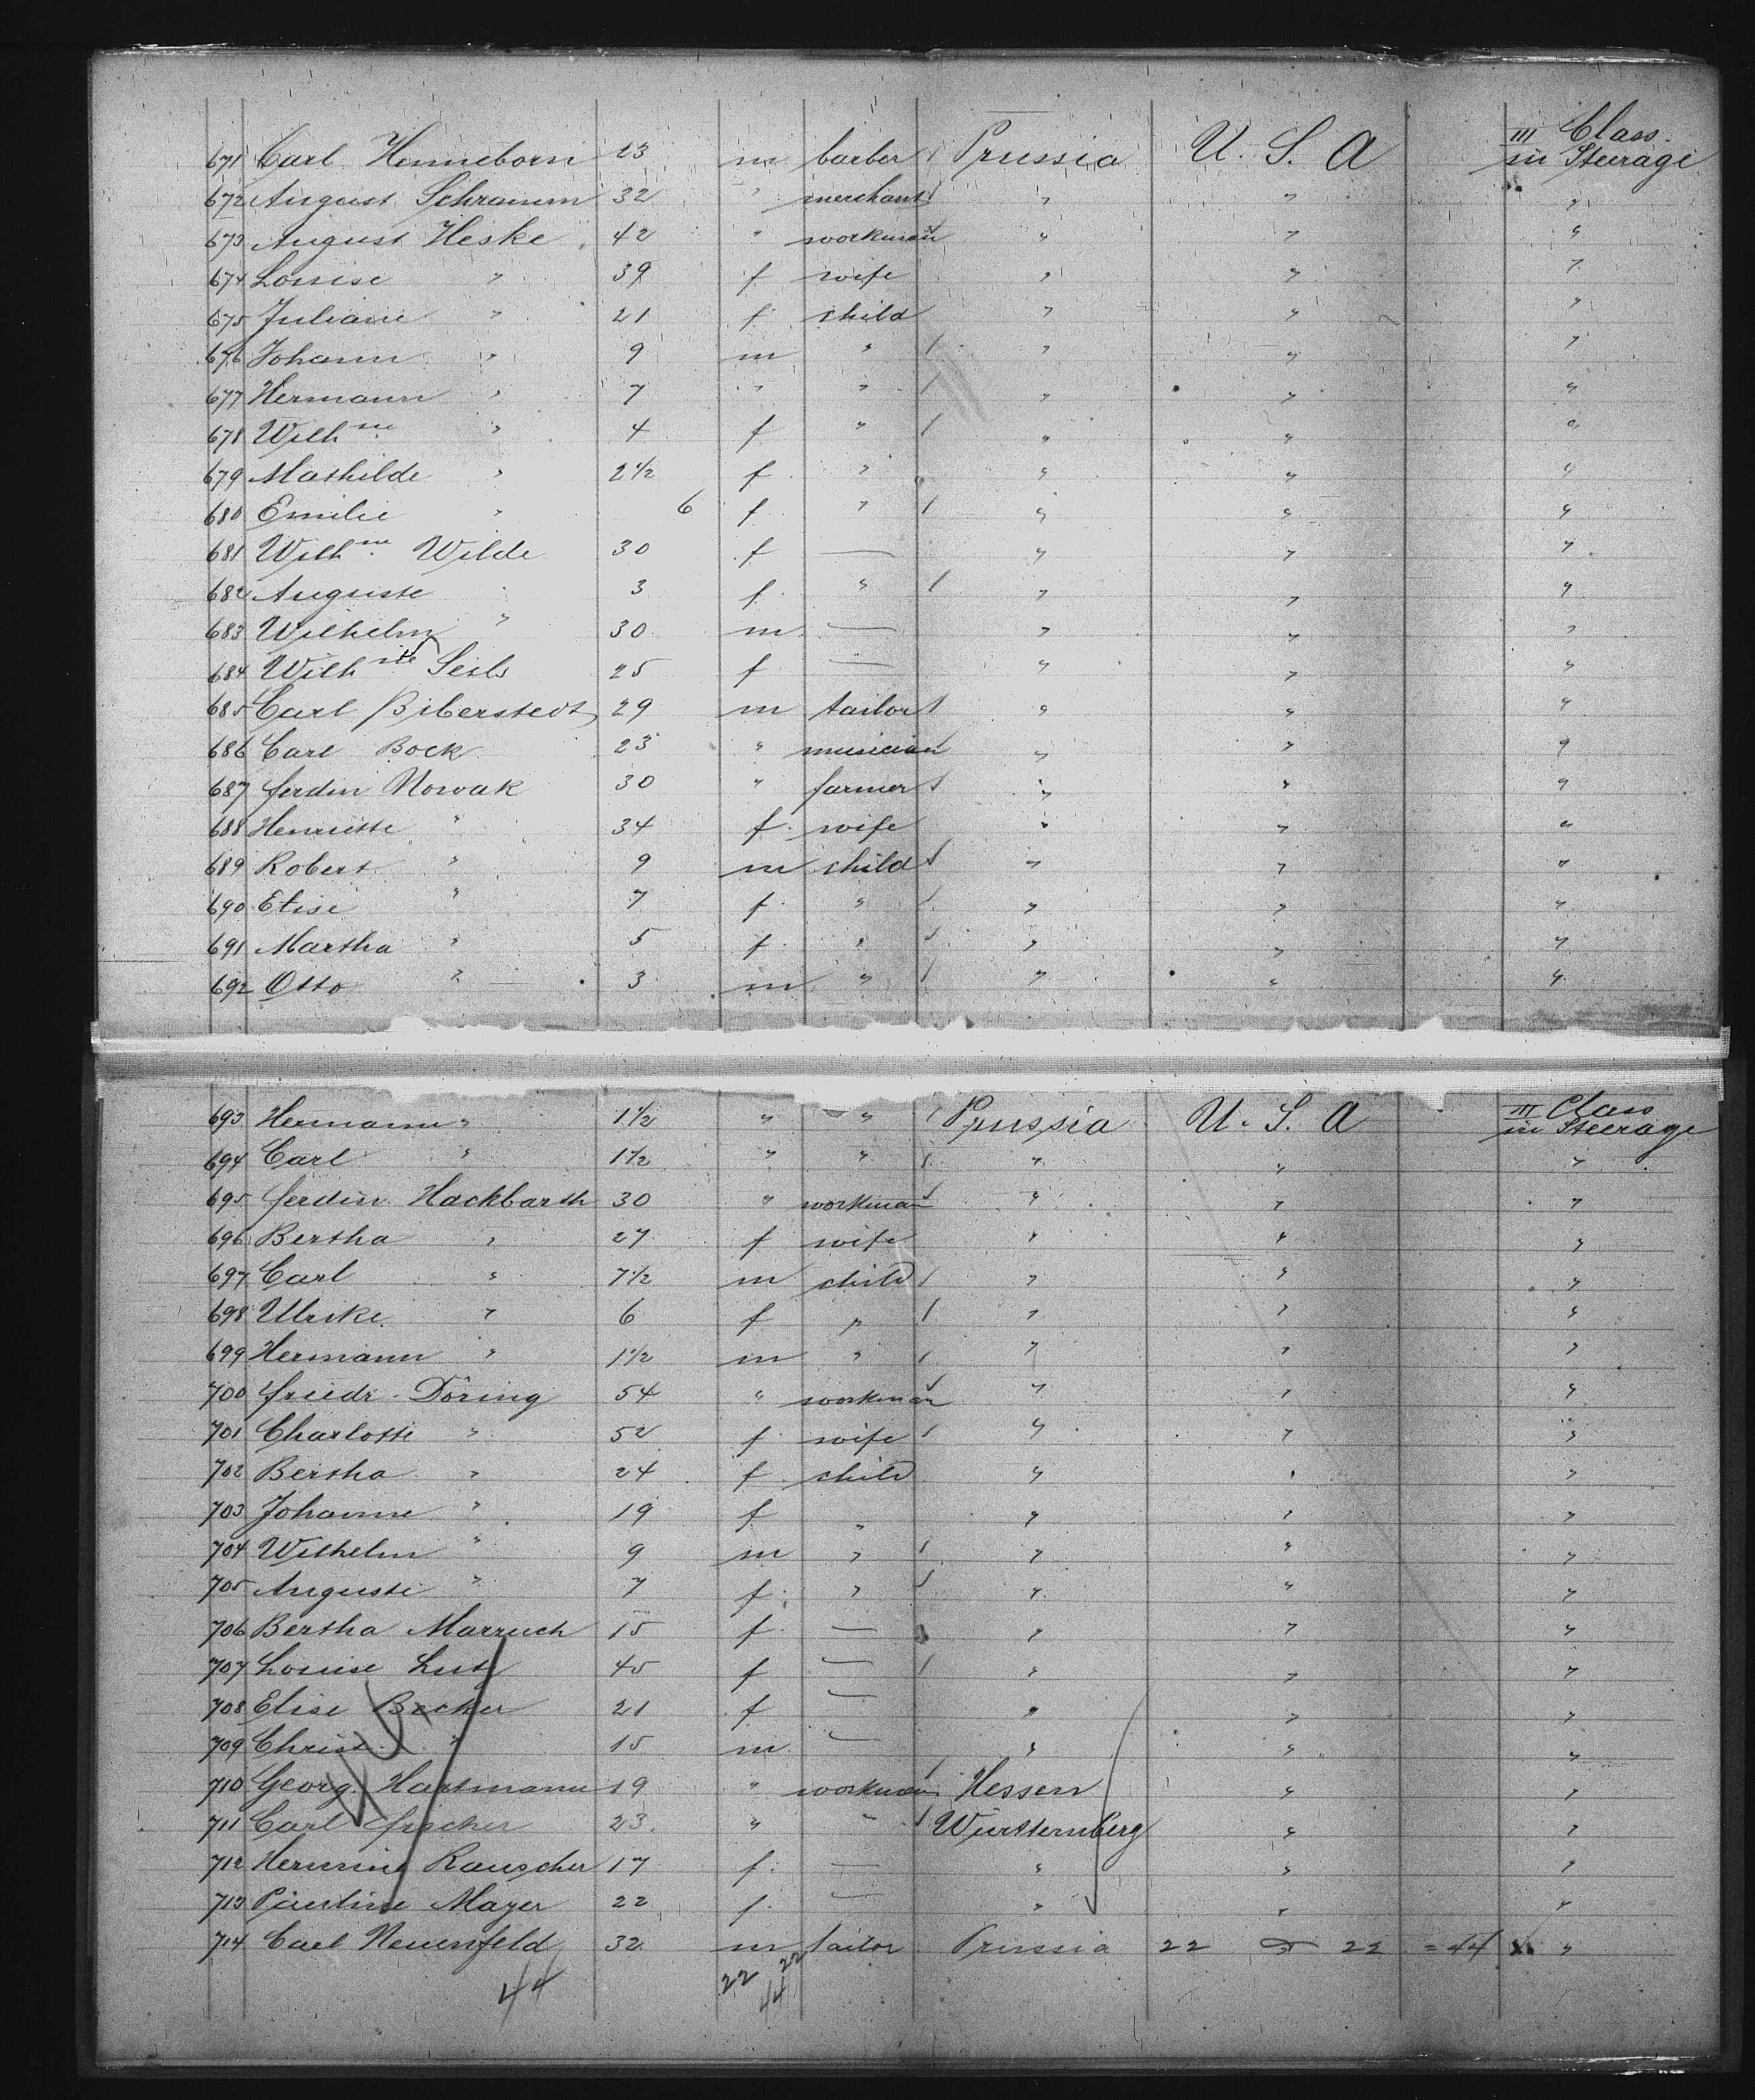 671 Carl Henneborn 23 m barber Prussia U. S. A III Class in Steerage
672 August Schramm 32 " merchant " " "
673 August Heske 42 " workman " " "
674 Louise " 39 f wife " " "
675 Juliane " 21 f child " " "
676 Johann " 9 m " " " "
677 Hermann " 7 " " " " "
678 Wilhne " 4 f " " " "
679 Mathilde " 2 1/2 f " " " "
680 Emilie " 6 f " " " "
681 Wilhne Wilde 30 f — " " "
682 Auguste " 3 f " " " "
683 Wilhelm " 30 m — " " "
684 Wilh Seils 25 f — " " "
685 Carl Biberstedt 29 m tailor " " "
686 Carl Bock 23 " musician " " "
687 Ferdin Nowak 30 " farmer " " "
688 Henriette " 34 f wife " " "
689 Robert " 9 m child " " "
690 Elise " 7 f " " " "
691 Martha " 5 f " " " "
692 Otto " 3 m " " " "
693 Hermann " 1 1/2 " " Prussia U. S. A III Class in Steerage
694 Carl " 1 1/2 " " " " "
695 Ferdin. Hackbarth 30 " workman " " "
696 Bertha " 27 f wife " " "
697 Carl " 7 1/2 m child " " "
698 Ulrike " 6 f " " " "
699 Hermann " 1 1/2 m " " " "
700 Friedr. Döring 54 " workman " " "
701 Charlotte " 52 f wife " " "
702 Bertha " 24 f child " " "
703 Johanne " 19 f " " " "
704 Wilhelm " 9 m " " " "
705 Auguste " 7 f " " " "
706 Bertha Marzuch 15 f — " " "
707 Louise Lutz 45 f — " " "
708 Elise Becker 21 f — " " "
709 Christ. " 15 m — " " "
710 Georg Hartmann 19 " workman Hessen " "
711 Carl Fischer 23 " " Württemberg " "
712 Hermine Rauscher 17 f — " " "
713 Pauline Mayer 22 f — " " "
714 Carl Neuenfeld 32 m tailor Prussia 22 22 = 44 "
44 22 22 44